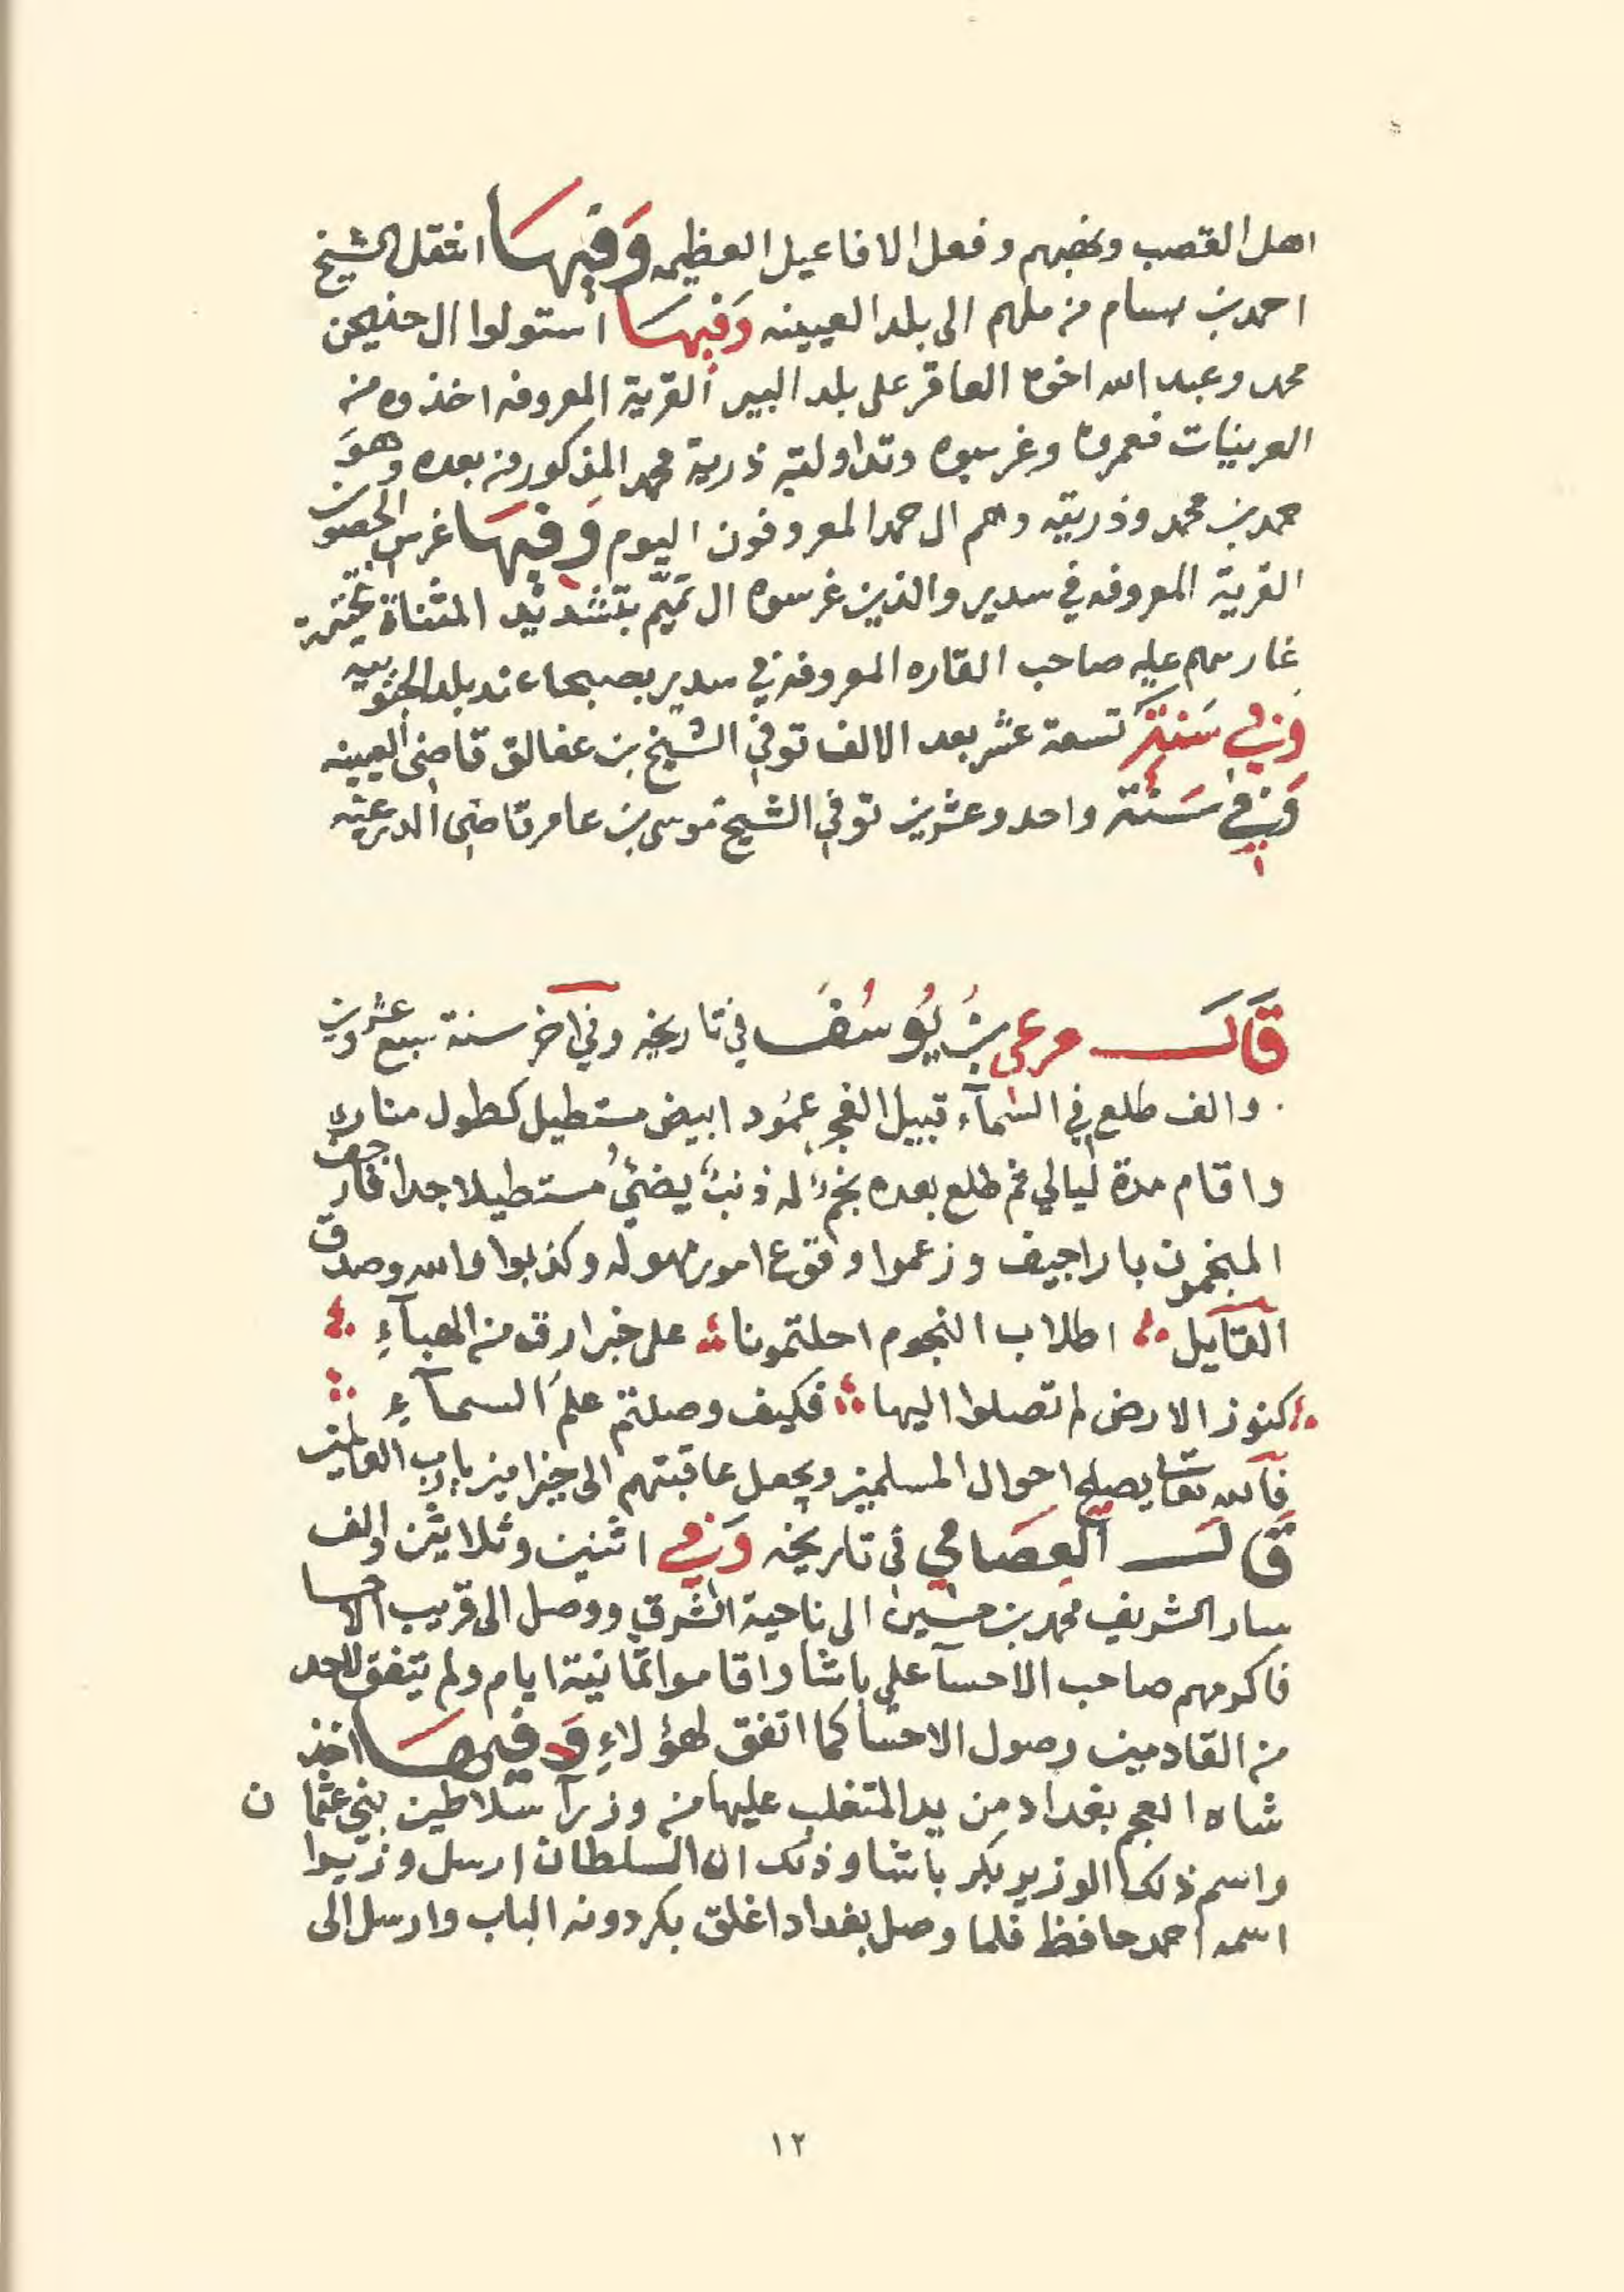 اهل القصب ونهبهم وفعل الافاعيل العظيمه وَفيهَا انتقل الشيخ
احمد بن بسام من ملهم الى بلد العيينه وَفيهَا استولوا ال حنيحن
محمد وعبد الله اخوه العاقر على بلد البير القرية المعروفه اخذوه من
العرينات فعمروه وغرسوه وتداولته ذرية محمد المذكور من بعده وهوَ
حمد بن محمد وذريته وهم ال حمد المعروفون اليوم وَفيهَا غرس الحصون
القرية المعروفه في سدير والذين غرسوه ال تميّم بتشديد المثناة تحتية
غارسهم عليه صاحب القاره المعروفه في سدير بصبحا عند بلد الجنوبيه
وَفي سَنة تسعة عشر بعد الالف توفي الشيخ بن عفالق قاضي العيينه
وَفي سَنة واحد وعشرين توفي الشيخ موسى بن عامر قاضي الدرعيه
قَالَ مرعي بن يُوسُفَ في تاريخه وفي آخر سنة سبع وعشرين
والف طلع في السماء قبيل الفجر عمُود ابيض مستطيل كطول مناره
واقام مدة ليالي ثم طلع بعده نجم له ذنبٌ يضئُ مستطيلا جدا فارجف
المنجمون باراجيف وزعموا وقوع امور مهوله وكذبوا والله وصدق
القآيل اطلاب النجوم احلتمونا على خبر ارق من الهبآءِ
كنوز الارض لم تصلوا اليها فكيف وصلتم علمَ السمآءِ
فالله تعا يصلح احوال المسلمين ويجعل عاقبتهم الى خير امين يارب العالمين
قَالَ العِصَامي في تاريخه وَفي اثنين وثلاثين والف
سار الشريف محمد بن حسين الى ناحية الشرق ووصل الى قريب الاحسا
فاكرمهم صاحب الاحسآ علي باشا واقاموا ثمانية ايام ولم يتفق لاحد
من القادمين وصول الاحسا كما اتفق لهؤلاءِ وَفيهَا اخذ
شاه العجم بغداد من يد المتغلب عليها من وزرآ سلاطين بني عثمان
واسم ذلك الوزير بكر باشا وذلك ان السلطان ارسل وزيرا
اسمه احمد حافظ فلما وصل بغداد اغلق بكر دونه الباب وارسل الى
١٢